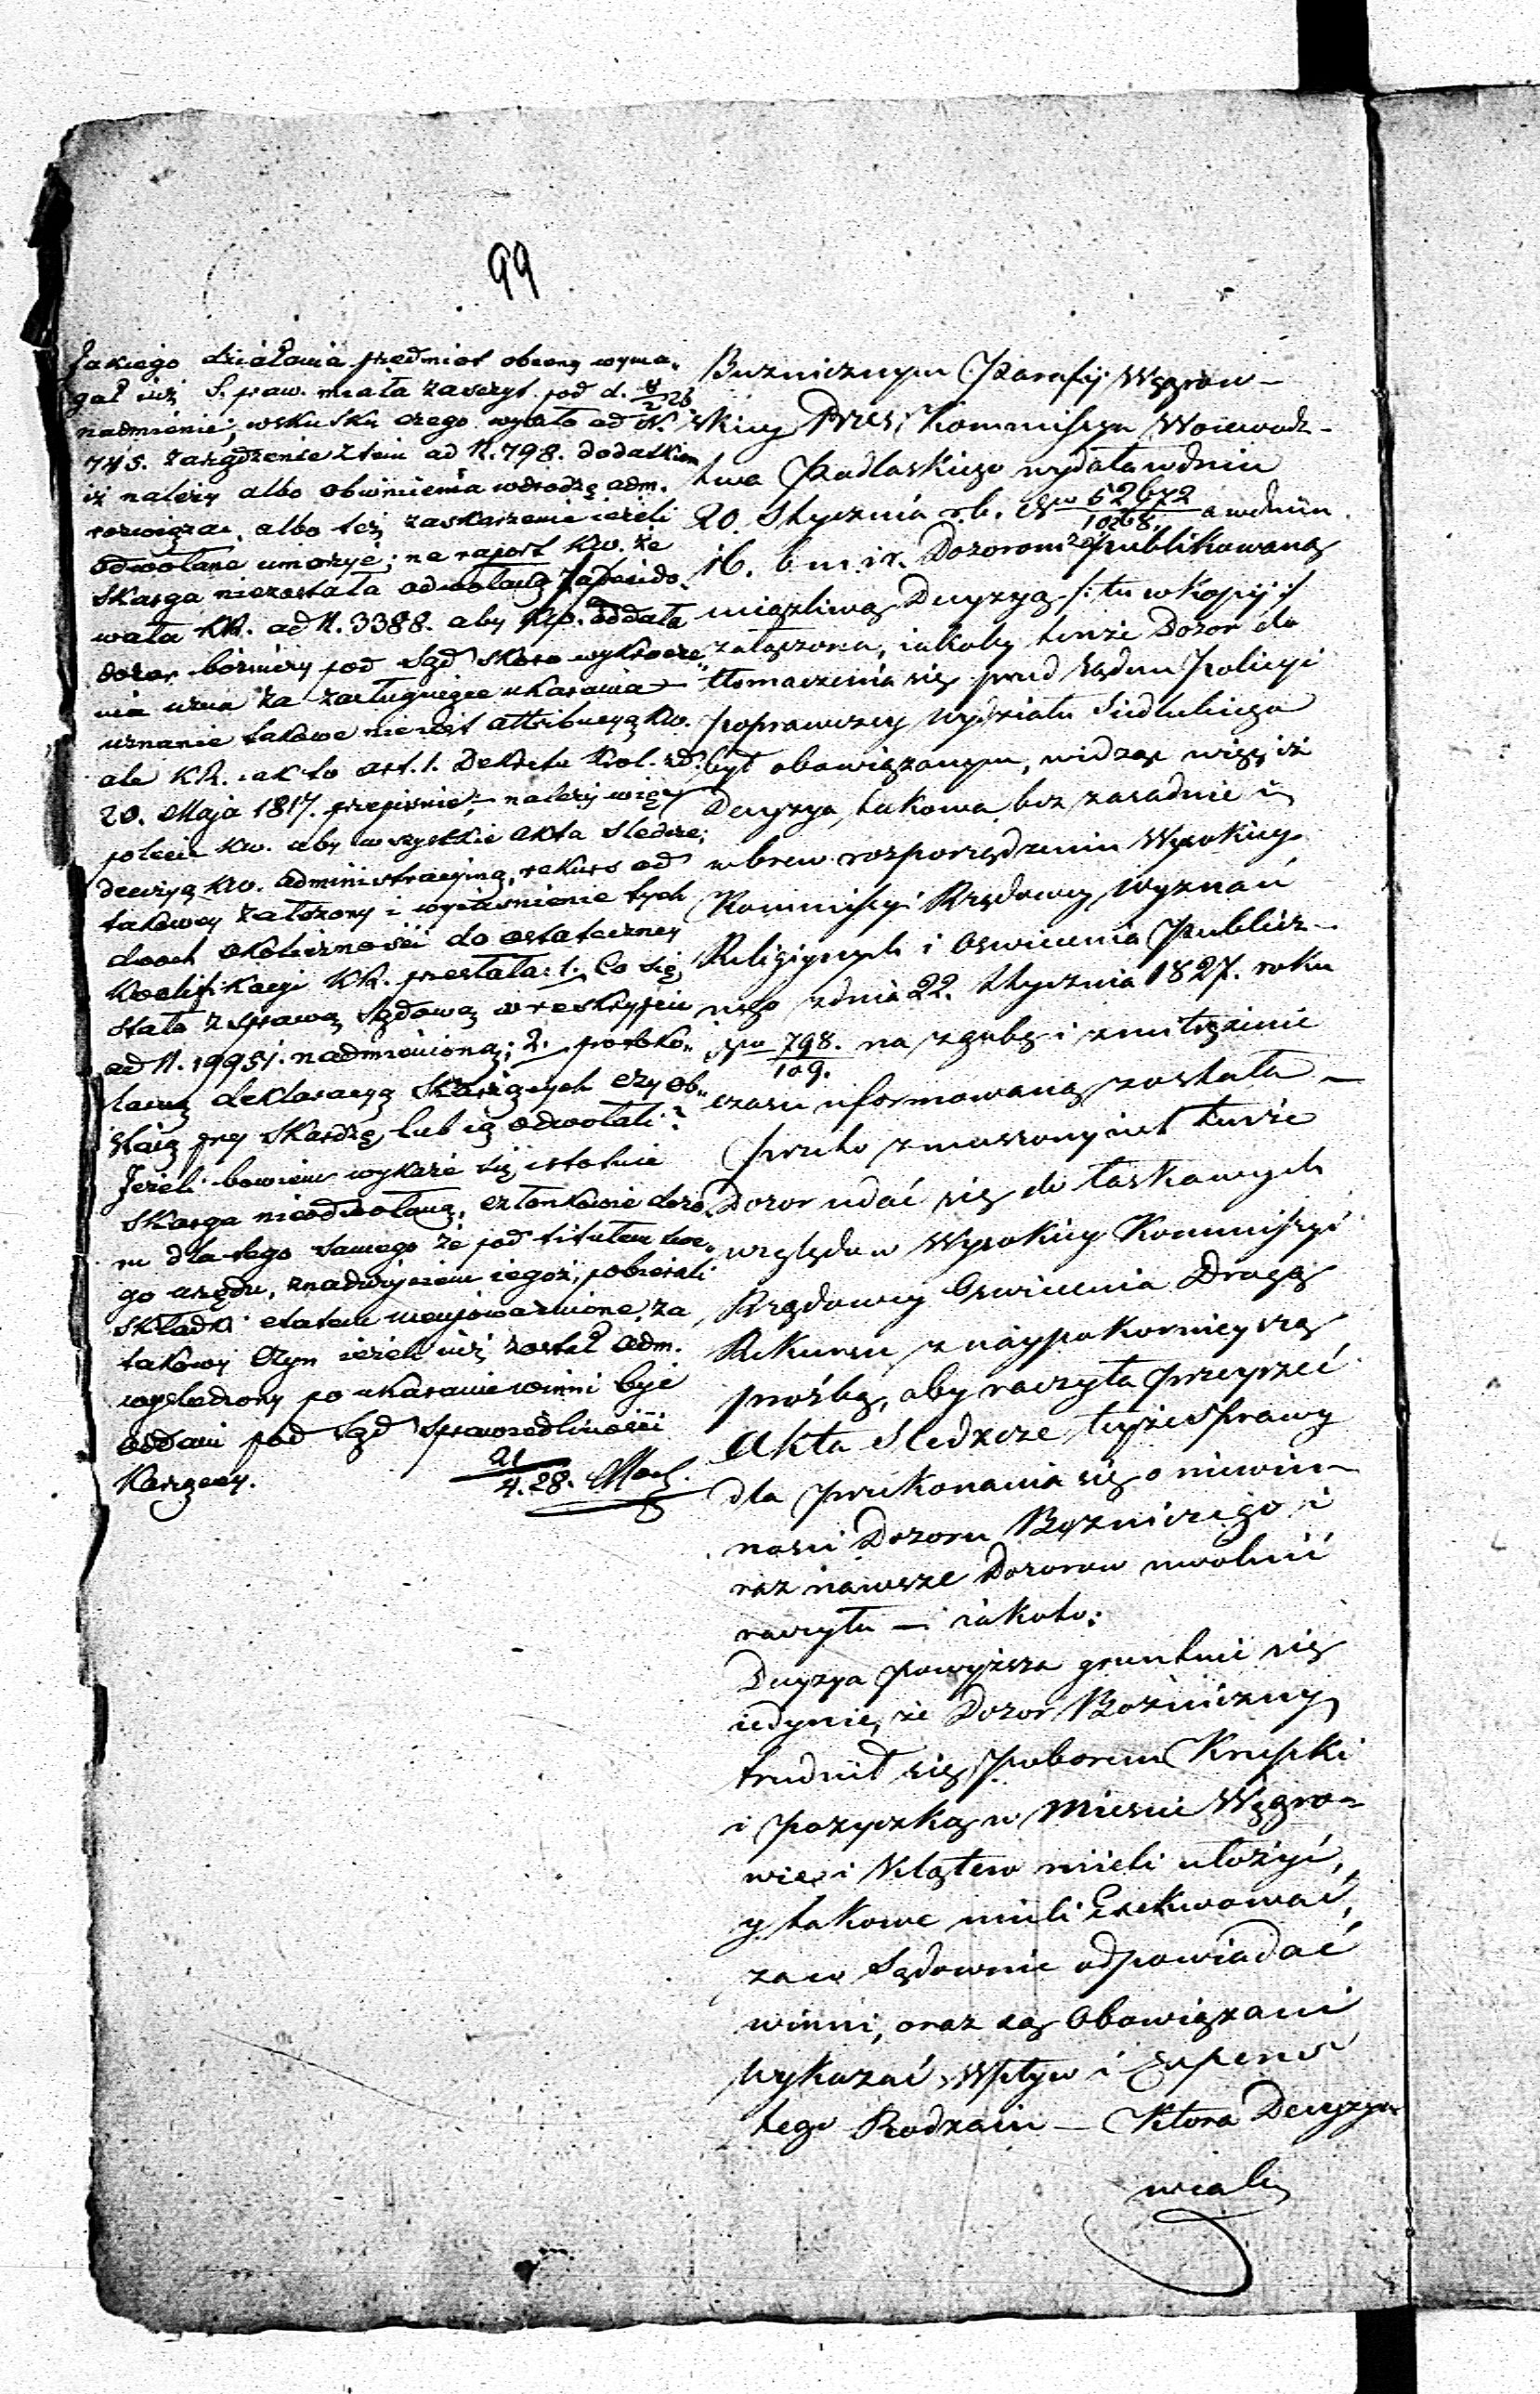 99
Jakiego działania przedmiot obecny wyma„
gał już S. praw. miała zaszczyt pod d. 8/2 26
nadmienić; wskutku czego wydało ad N.
745. zarządzenie z tem ad N. 798. dodatkiem
iż należy albo obwinienia w drodze adm.
rozwiązać, albo też zaskarżenie ieżeli
odwołane umorzyć; na raport Kw. że
Skarga niezostała odwołaną zadecido„
wała KR. ad N. 3388. aby Kw. oddała
dozor bożniczy pod Sąd skoro wykrocze„
nia uzna za zasługujące ukarania —
uznanie takowe nie iest attribucyą Kw.
ale KR. iak to art. 1. Dekretu Krol. z d.
20. Maja 1817. przepisuie; — należy więc
polecić Kw. aby wszystkie akta śledcze,
decizyą Kw. administracyiną, rekurs od
takowey założony i wyiaśnienie tych
dwoch okoliczności do ostateczney
kwalifikacyi KR. przesłała: 1. Co się
stało z sprawą sądową w reskrypcie
ad N. 19951. nadmienioną; 2.
deklaracyą skarżących czy ob„
staią przy skardze, lub ią odwołali?
Jeżeli bowiem wykaże się istotnie
skarga nieodwołaną, członkowie dozo„
ru dla tego samego że pod titułem swe„
go urzędu, z nadużyciem iegoż, pobierali
składki etatem nieupoważnione, za
takowy czyn ieżeli iuż został adm.
wyśledzony po ukaranie winni być
oddani pod Sąd sprawiedliwości
Karzącey.
21/4. 28.
Buznicznym Parafij Węgrow —
skiey Przez Kommissyą Woiewodz —
twa Podlaskiego wydała w dniu
20. Stycznia r. b. N 52672/10268. a w dniu
16. b. m. i r. Dozorom publikowaną
uciążliwą Decyzyą /: tu w kopij :/
załączona, iakoby tenże Dozor do
tłomaczenia się przed Sądem Policyi
poprawczey Wydziału Siedleckiego
był obowiązanym, widząc więc iż
Decyzya takowa bez zasadnie i
wbrew rozporządzeniu Wysokiey
Kommissyi Rządowey Wyznań
Religiynych i Oswiecenia Publicz —
nego z dnia 22. Stycznia 1827. roku
798./109. na zgubę i zmitrężenie
czasu uformowaną została —
Przeto zmuszony iest tenże
Dozor udać się do łaskawych
względow Wysokiey Kommissyi
Rządowey Oswiecenia Drogą
Rekursu z naypokornieyszą
proźbą, aby raczyła przeyrzeć
Akta Sledcze teyże Sprawy
dla przekonania się o niewin —
nosci Dozoru Bożniczego i
raz nawsze Dozorow uwolnić
raczyła — iakoto:
Decyzya powyższa gruntuie się
iedynie, że Dozor Bożniczny
trudnił się Poborem Krupki
i pożyczką w Miescie Węgro —
wie i Klątew mieli ułożyć,
y takowe mieli Exekwować,
zaco Sądownie odpowiadać
winni, oraz są Obowiązani
Wykazać Wpływ i Expens
tego Rodzaiu — Ktora Decyzya